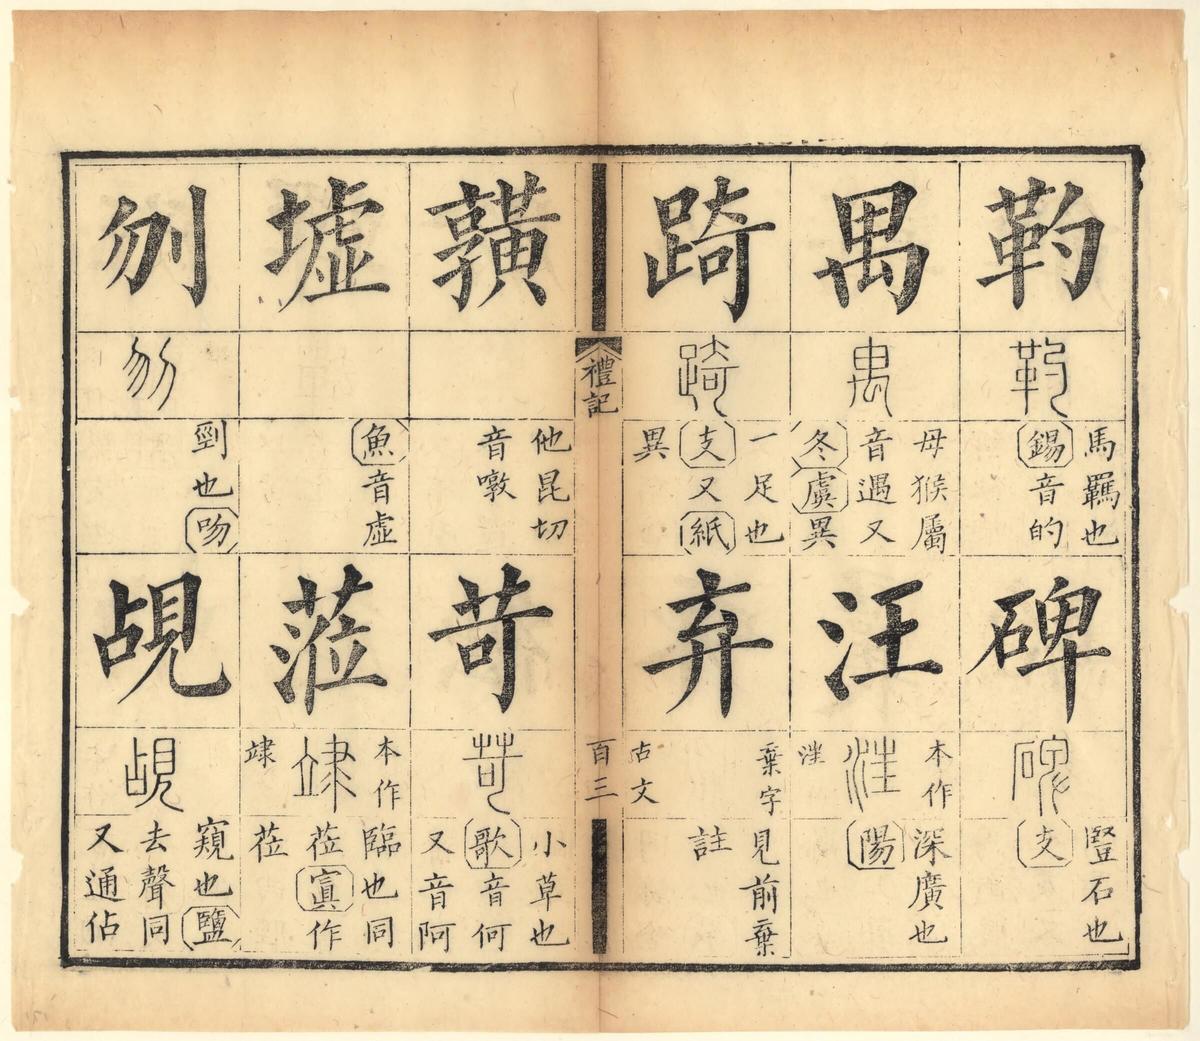 靮
靮
馬羈也
錫音的
禺
禺
母猴屬
音遇又
冬虞異
踦
踦
一足也
支又紙
異
碑
碑
豎石也
支
汪
本作
汪
深廣也
陽
弃
棄字
古文
見前棄
註
禮記
百三
他昆切
音噋
墟
魚音虛
刎
刎
剄也吻
苛
苛
小草也
歌音何
又音阿
蒞
本作
竦
臨也同
莅寘作
莅
覘
覘
窺也鹽
去聲同
又通佔